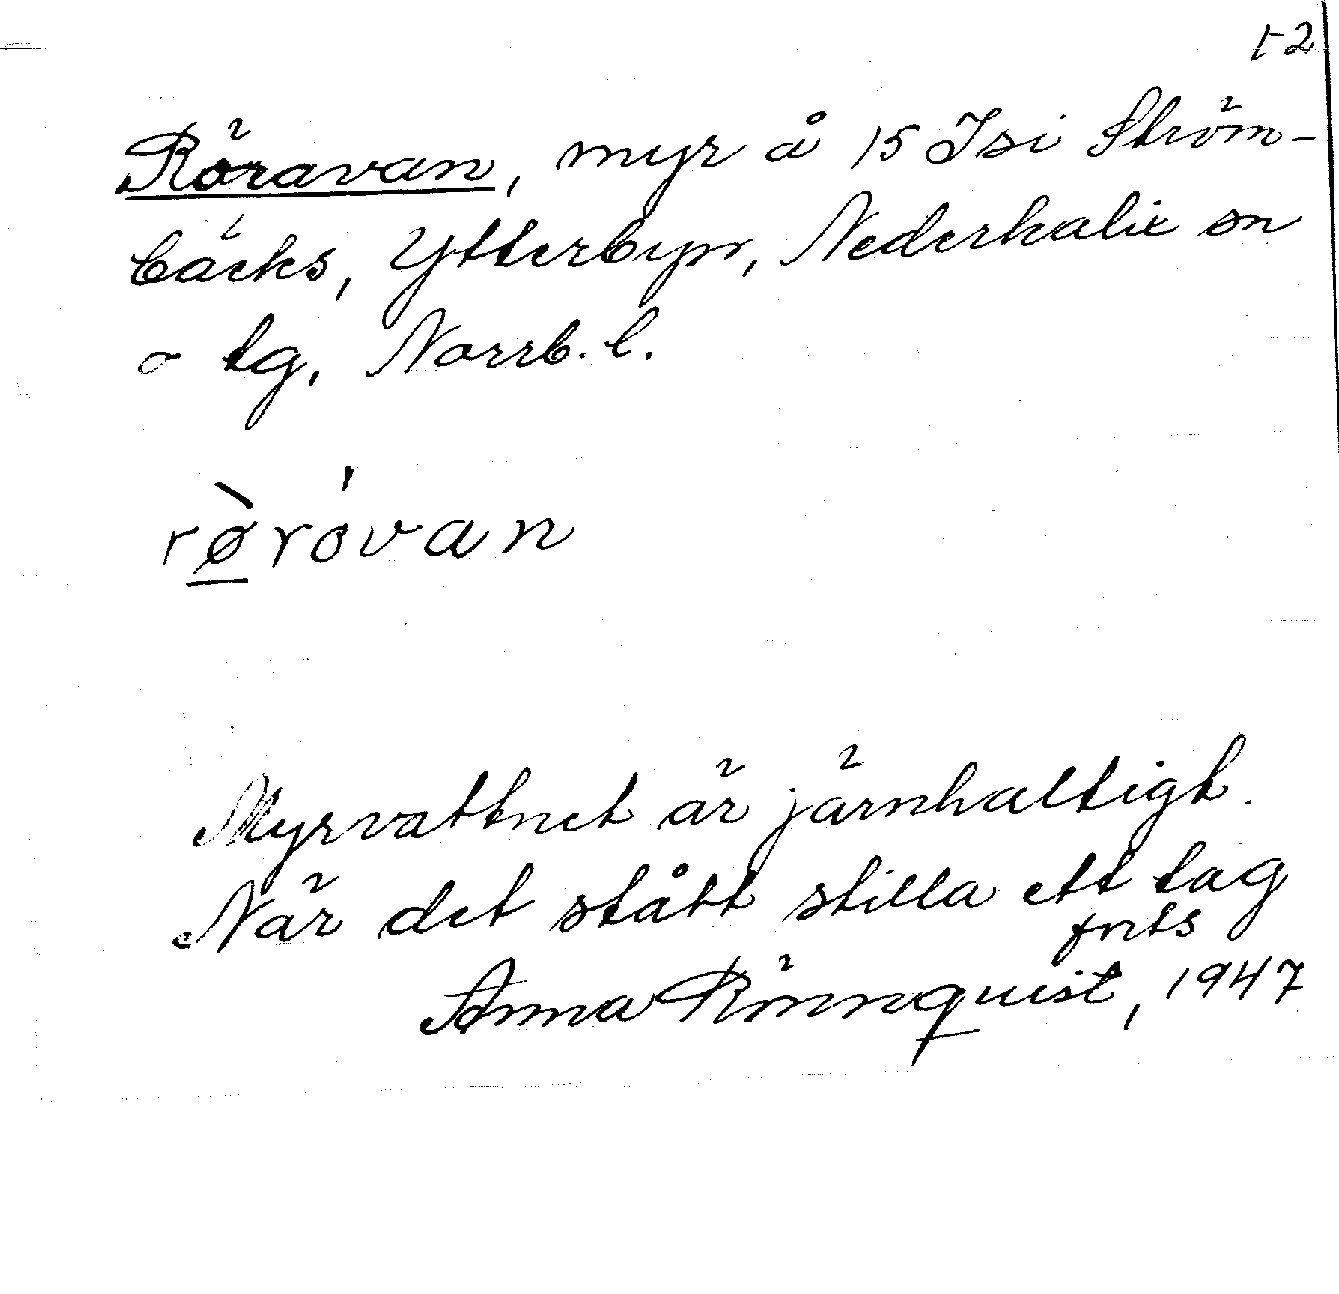 t2
Röravan, myr å 15 Isi Ström-
bäcks, Ytterbyn, Nederkalix sn
o tg, Norrb. l.
rø̀róvan
Myrvattnet är järnhaltigt.
När det stått stilla ett tag
forts
Anna Rönnquist, 1947